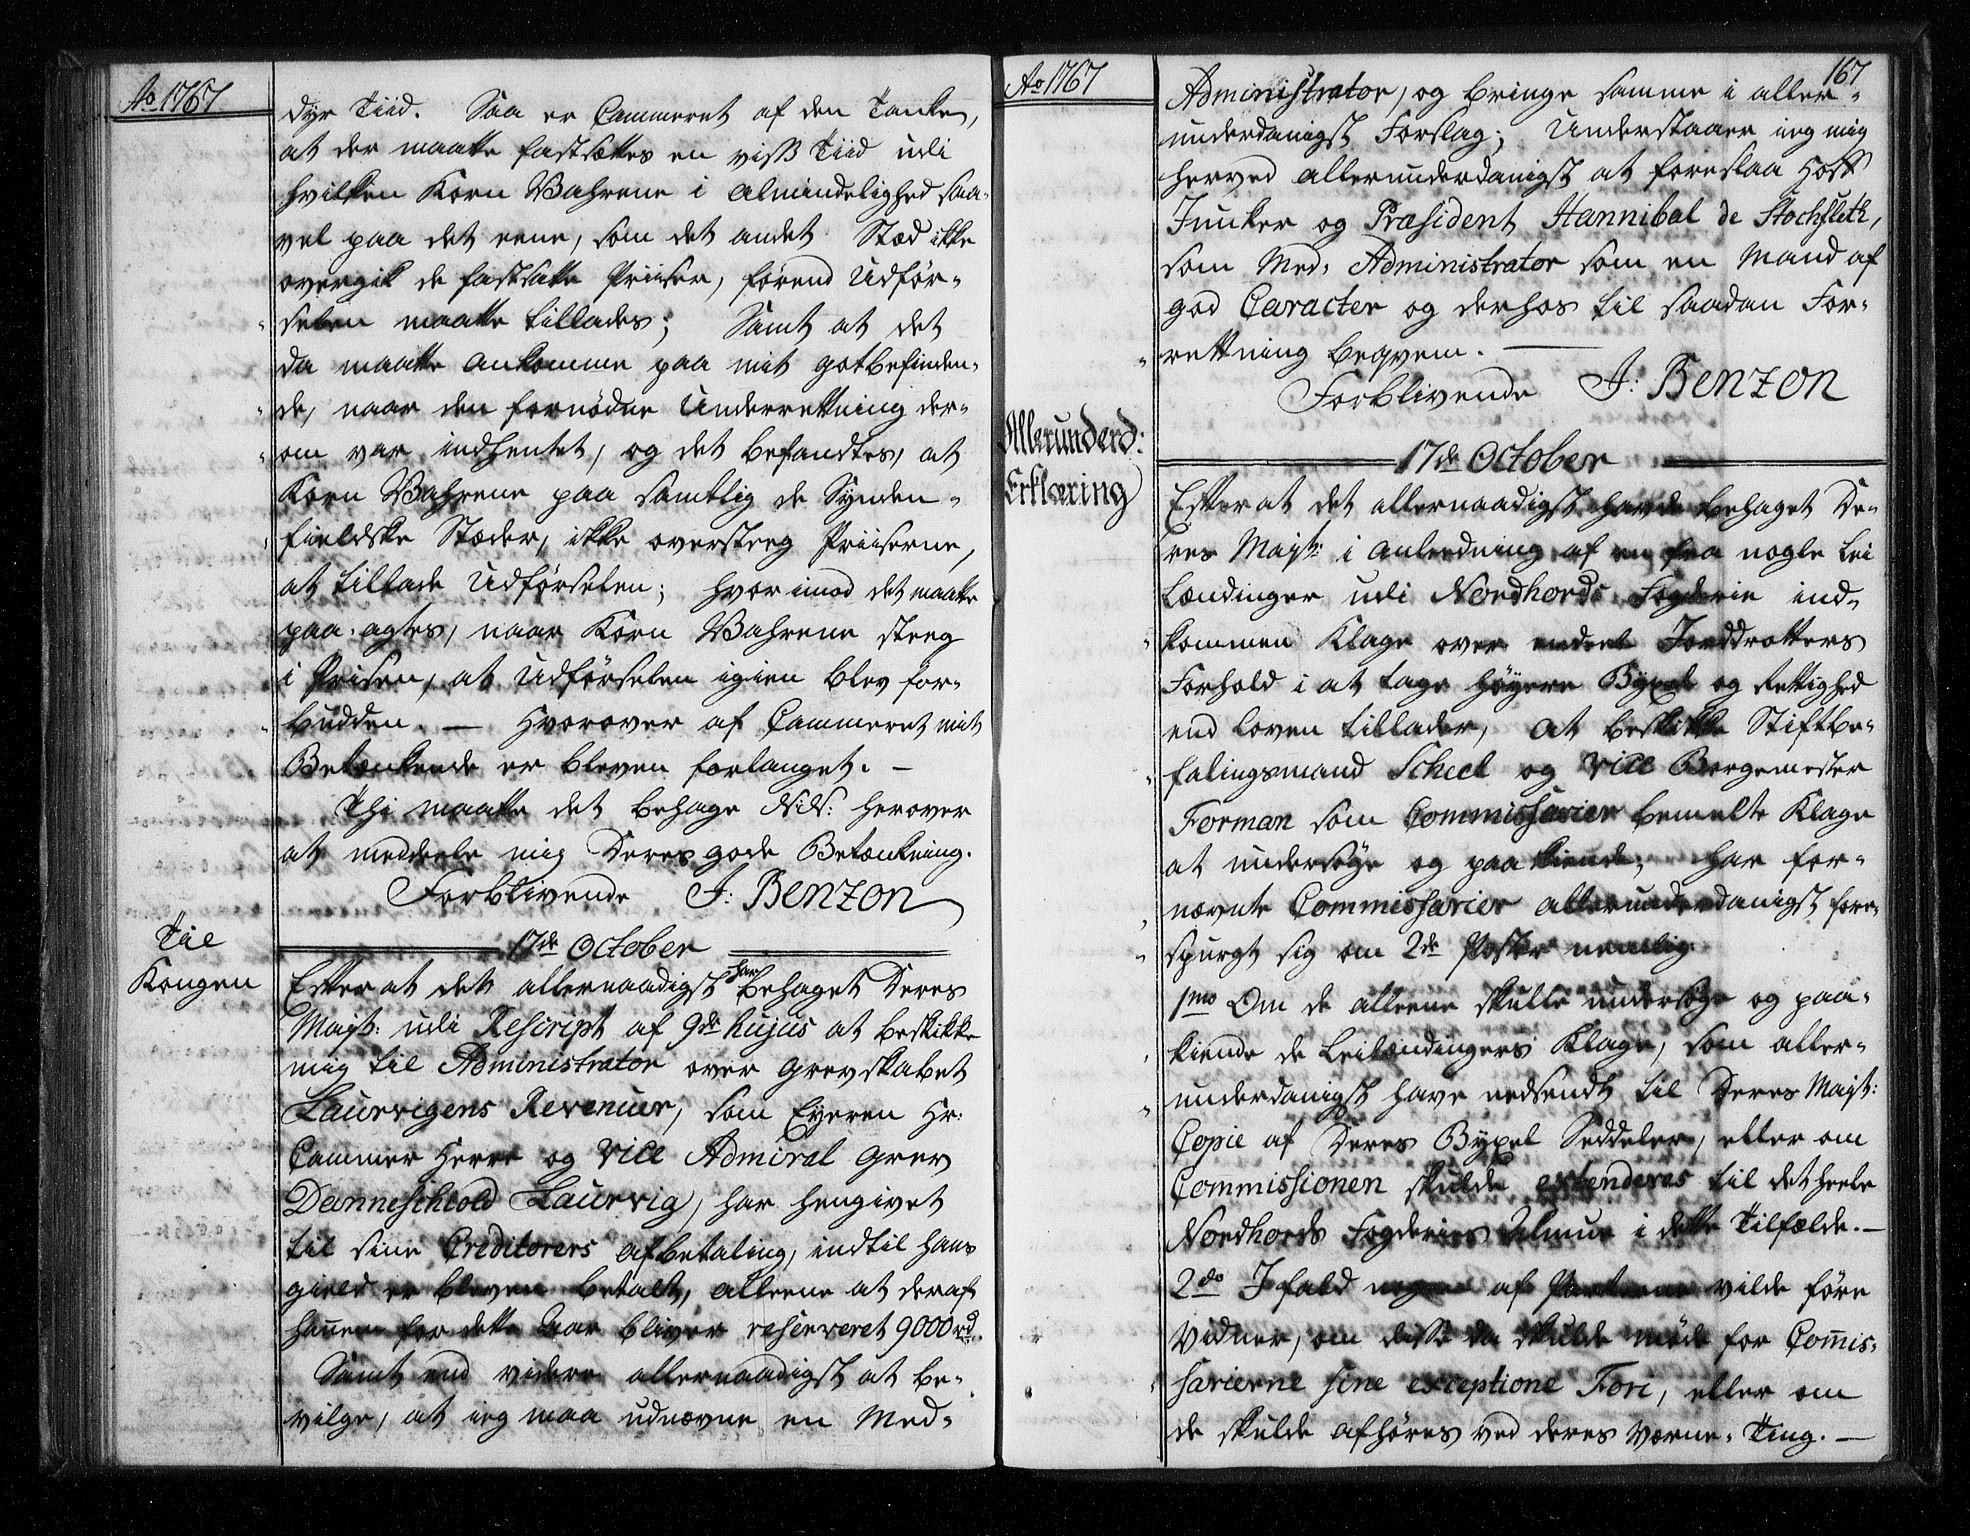 Ao 1767
dyr Tiid. Saa er Cammeret af den Tanke,
at der maatte fastsættes en viss Tiid udi
hvilken Korn Vahrene i almindelighed saa-
vel paa det eene, som det andet Stæd ikke
overgik de fastsatte Priiser, førend Udfør-
selen maatte tillades; Samt at det
da maatte ankomme paa mit gotbefinden-
de, naar den fornødne Underrettning der-
om var indhentet, og det befandtes, at
Korn Vahrene paa samtlig de Synden-
fieldske Stæder, ikke oversteeg Priiserne,
at tillade Udførselen; hvorimod det maatte
paa agtes, naar Korn Vahrene steeg
i Prisen, at Udførselen igien blev for-
budden. — Hvorover af Cammeret mit
Betænkende er bleven forlanget. —
Thi maatte det behage N:N: herover
at meddeele mig Deres gode Betænkning.
Forblivende J: Benzon
Til
Kongen
17de October
Efterat det allernaadigst har behaget Deres
Majst: udi Rescript af 9de hujus at beskikke
mig til Administrator over Grevskabet
Laurvigens Revenuer, som Eyeren Hr:
Cammer Herre og Vice Admiral Grev
Danneschiold Laurvig, har hengivet
til sine Creditorers afbetaling, indtil hans
gield er bleven betalt, alleene at deraf
hannem for dette Aar bliver reserveret 9000 rd.
Samt end videre allernaadigst at be-
vilge, at ieg maa udnævne en Med-
Ao 1767
167
Administrator, og bringe samme i aller-
underdanigst Forslag; Understaaer ieg mig
herved allerunderdanigst at foreslaa Hoff
Juncker og Præsident Hannibal de Stochfleth,
som Med: Administrator som en Mand af
god Caracter og derhos til saadan For-
rettning beqvem. —
Forblivende J: Benzon
Allerunderd:
Erklæring
17de October
Efterat det allernaadigst havde behaget De-
res Majst: i anleedning af en fra nogle Lei
Lændinger udi Nordhords Fogderie ind-
kommen Klage over endeel Jorddrotters
Forhold i at tage høyere Bypel og Rettighed
end loven tillader, at beskikke Stiftbe-
falingsmand Scheel og Vice Borgemester
Forman som Commissarier bemelte Klage
at undersøge og paakiende; har for-
nævnte Commissarier allerunderdanigst fore-
spurgt sig om 2de Poster nemlig
1mo Om de alleene skulle undersøge og paa-
kiende de Leilændingers Klage, som aller-
underdanigst have nedsendt til Deres Majst:
Copie af Deres Bypel Seddeler, eller om
Commissionen skulde extenderes til det heele
Nordhords Fogderies Almue i dette Tilfælde. —
2do I fald nogen af Parterne vilde føre
Vidner, om disse da skulde møde for Comis-
sarierne sine exceptione Fori, eller om
de skulde afhøres ved deres Værne-Ting. —